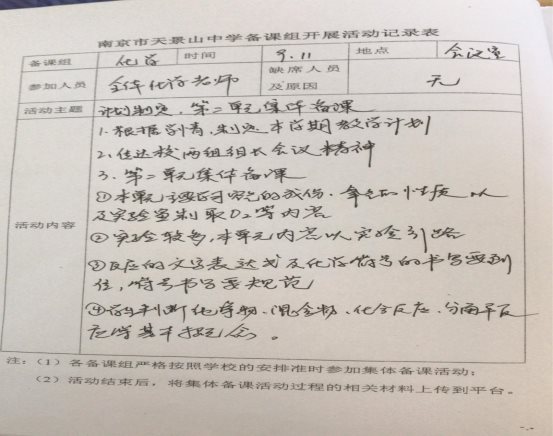 南京市天景山中学备课组开展活动记录表
备课组 化学 时间 9.11 地点 会议室
参加人员 全体化学老师 缺席人员及原因 无
活动主题 计划制定、第二单元集体备课
活动内容
1.根据 制定本学期教学计划
2.传达校两组组长会议精神
3.第二单元集体备课
①本单元 空气的成份、氧气的性质以
及实验室制取O₂等内容
②实验较多,本单元内容以实验引路
③反应的文字表达式及化学符号的书写要到
位,符号书写要规范
④学会判断化合物、混合物、化合反应、分解反
应等基本概念。
注:(1)各备课组严格按照学校的安排准时参加集体备课活动;
(2)活动结束后,将集体备课活动过程的相关材料上传到平台。